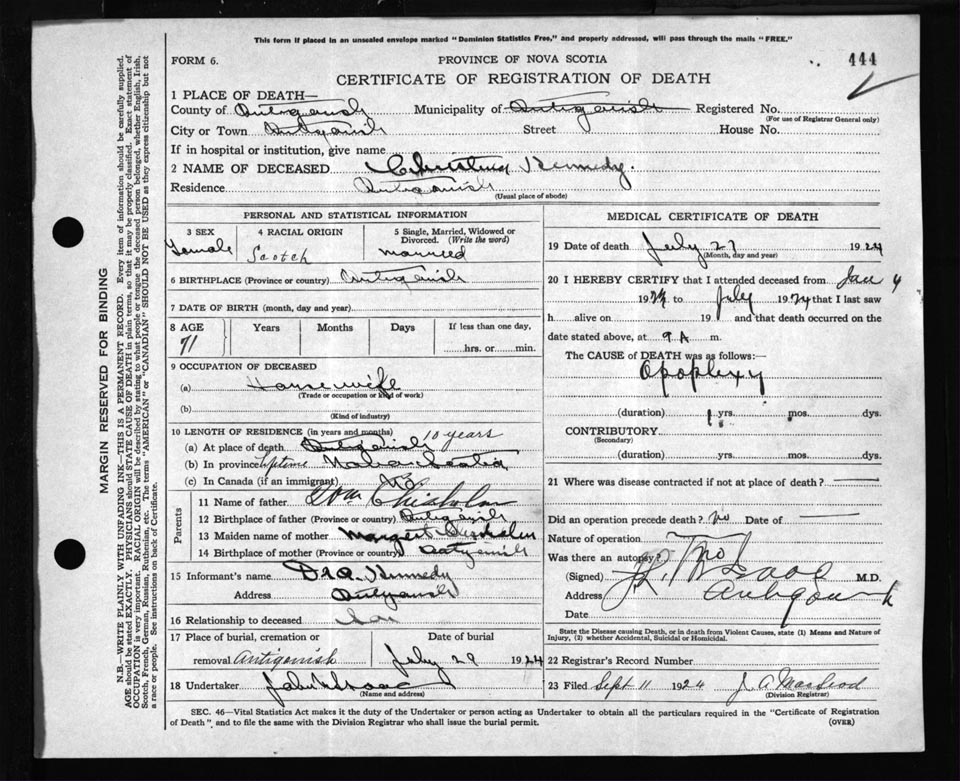 This form if placed in an unsealed envelope marked "Dominion Statistics Free," and properly addressed, will pass through the mails "FREE."
FORM 6.
PROVINCE OF NOVA SCOTIA
444
CERTIFICATE OF REGISTRATION OF DEATH
1 PLACE OF DEATH—
County of Antigonish Municipality of Antigonish Registered No.
(For use of Registrar General only)
City or Town Antigonish Street House No.
If in hospital or institution, give name
2 NAME OF DECEASED Christina Kennedy.
Residence Antigonish
(Usual place of abode)
PERSONAL AND STATISTICAL INFORMATION
3 SEX 4 RACIAL ORIGIN 5 Single, Married, Widowed or Divorced. (Write the word)
Female Scotch married
6 BIRTHPLACE (Province or country) Antigonish
7 DATE OF BIRTH (month, day and year)
8 AGE Years Months Days If less than one day,
71 hrs. or min.
9 OCCUPATION OF DECEASED
(a) Housewife
(Trade or occupation or kind of work)
(b)
(Kind of industry)
10 LENGTH OF RESIDENCE (in years and months) 10 years
(a) At place of death Antigonish
(b) In province lifetime Nova Scotia
(c) In Canada (if an immigrant) No
Parents
11 Name of father Chisholm
12 Birthplace of father (Province or country) Antigonish
13 Maiden name of mother Margaret Chisholm
14 Birthplace of mother (Province or country) Antigonish
15 Informant's name Kennedy
Address Antigonish
16 Relationship to deceased Son
17 Place of burial, cremation or Date of burial
removal Antigonish July 29 1924
18 Undertaker
(Name and address)
MEDICAL CERTIFICATE OF DEATH
19 Date of death July 27 1924
(Month, day and year)
20 I HEREBY CERTIFY that I attended deceased from Jan
1924 to July 1924 that I last saw
h alive on 19 and that death occurred on the
date stated above, at 9 A m.
The CAUSE of DEATH was as follows:—
Opoplexy
(duration) 1 yrs. mos. dys.
CONTRIBUTORY
(Secondary)
(duration) yrs. mos. dys.
21 Where was disease contracted if not at place of death? —
Did an operation precede death? no Date of —
Nature of operation
Was there an autopsy? no
(Signed) M.D.
Address Antigonish
Date
State the Disease causing Death, or in death from Violent Causes, state (1) Means and Nature of
Injury, (2) whether Accidental, Suicidal or Homicidal.
22 Registrar's Record Number
23 Filed Sept 11 1924 J. A. MacLeod
(Division Registrar)
SEC. 46—Vital Statistics Act makes it the duty of the Undertaker or person acting as Undertaker to obtain all the particulars required in the "Certificate of Registration
of Death" and to file the same with the Division Registrar who shall issue the burial permit. (OVER)
MARGIN RESERVED FOR BINDING
N.B.—WRITE PLAINLY WITH UNFADING INK—THIS IS A PERMANENT RECORD. Every item of information should be carefully supplied.
AGE should be stated EXACTLY. PHYSICIANS should STATE CAUSE OF DEATH in plain terms, so that it may be properly classified. Exact statement of
OCCUPATION is very important. RACIAL ORIGIN will be described by stating to what people or tongue the deceased person belonged, whether English, Irish,
Scotch, French, German, Russian, Ruthenian, etc. The terms "AMERICAN" or "CANADIAN" SHOULD NOT BE USED as they express citizenship but not
a race or people. See instructions on back of Certificate.